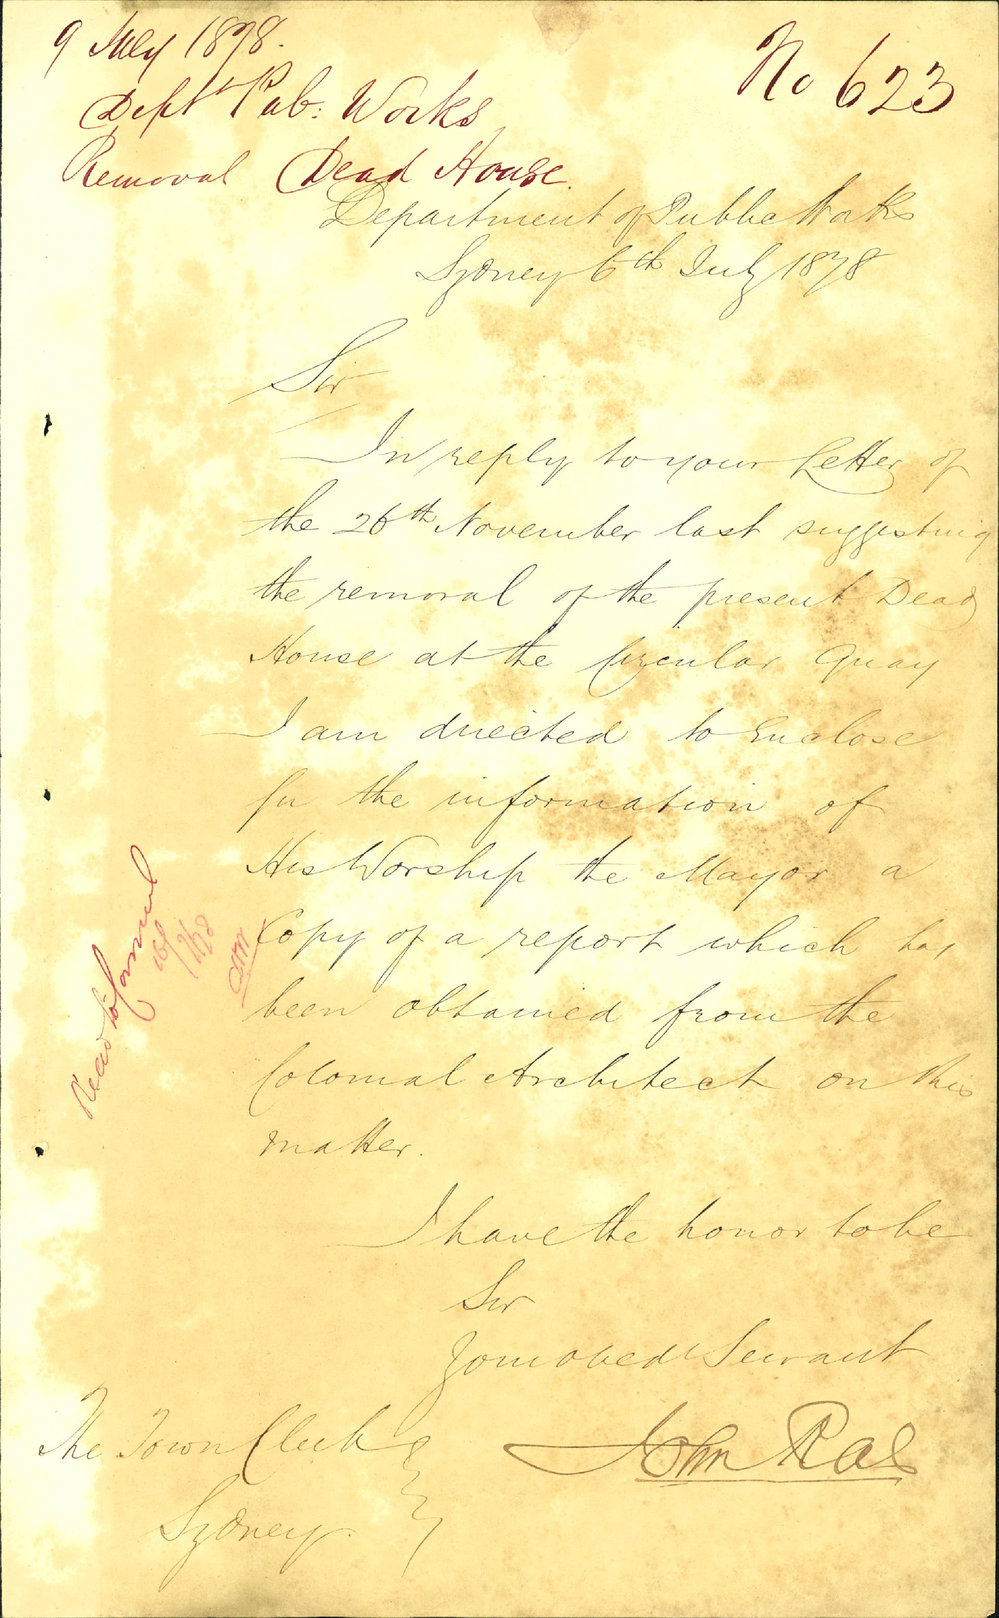 9 July 1878.
No 623
Dept Pub: Works
Removal Dead House.
Department of Public Works
Sydney 6th July 1878
Sir
In reply to your Letter of
the 26th November last suggesting
the removal of the present Dead
House at the Circular Quay
I am directed to Enclose
for the information of
His Worship the Mayor a
Copy of a report which has
been obtained from the
Colonial Architect on this
matter.
I have the honor to be
Sir
Your obedt Servant
John Rae
The Town Clerk
Sydney.
Read to Council